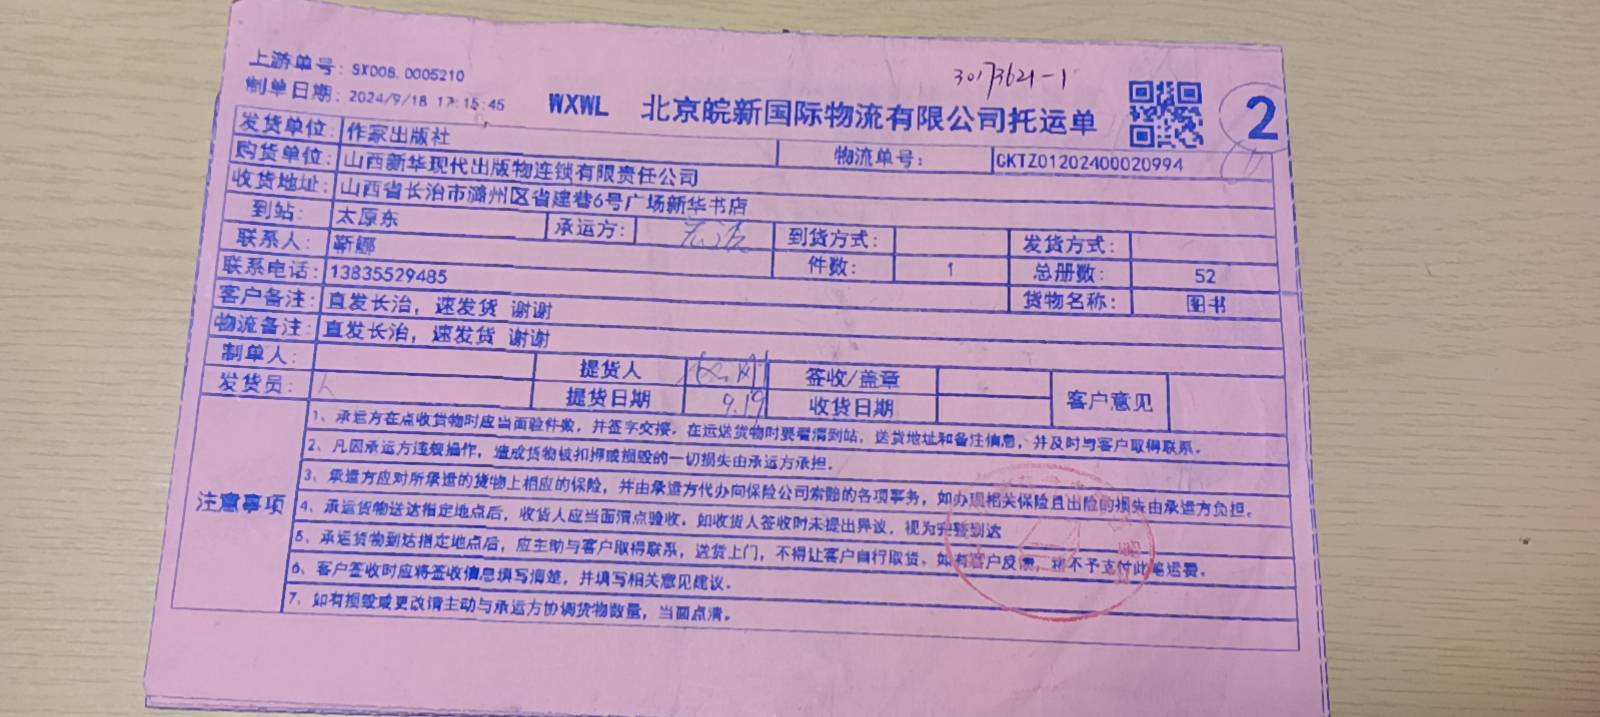 上游单号：SX008.0005210
30173621-1
制单日期：2024/9/18 17:15:45
WXWL 北京皖新国际物流有限公司托运单
2
发货单位：作家出版社 物流单号： CKTZ01202400020994
购货单位：山西新华现代出版物连锁有限责任公司
收货地址：山西省长治市潞州区省建巷6号广场新华书店
到站：太原东 承运方： 到货方式： 发货方式：
联系人：靳娜 件数：1 总册数：52
联系电话：13835529485 货物名称：图书
客户备注：直发长治，速发货 谢谢
物流备注：直发长治，速发货 谢谢
制单人： 提货人 签收/盖章 客户意见
发货员： 提货日期 9.19 收货日期
注意事项
1、承运方在点收货物时应当面验件数，并签字交接。在运送货物时要看清到站，送货地址和备注信息，并及时与客户取得联系。
2、凡因承运方违规操作，造成货物被扣押或损毁的一切损失由承运方承担。
3、承运方应对所承运的货物上相应的保险，并由承运方代办向保险公司索赔的各项事务，如办理相关保险且出险的损失由承运方负担。
4、承运货物送达指定地点后，收货人应当面清点验收。如收货人签收时未提出异议，视为完整到达
5、承运货物到达指定地点后，应主动与客户取得联系，送货上门，不得让客户自行取货。如有客户反馈，将不予支付此笔运费。
6、客户签收时应将签收信息填写清楚，并填写相关意见建议。
7、如有损毁或更改请主动与承运方协调货物数量，当面点清。